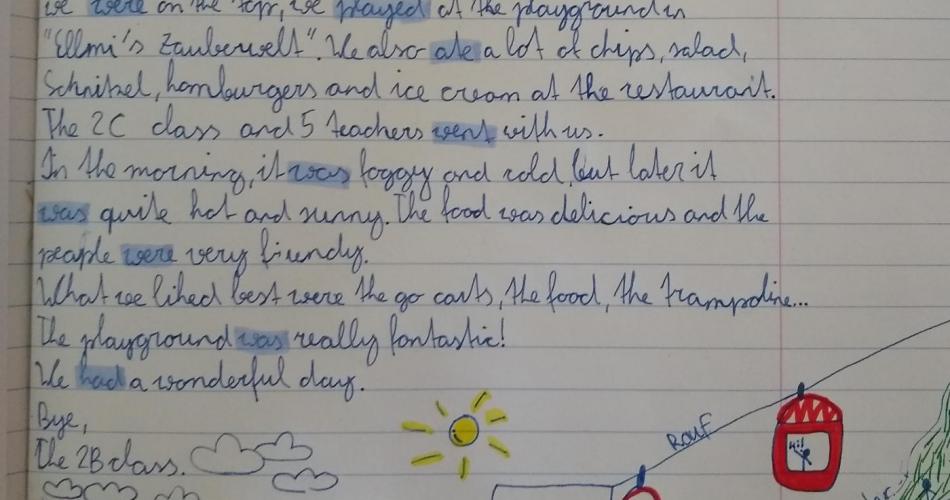 we were on the top, we played at the playground in
"Ellmi's Zauberwelt". We also ate a lot of chips, salad,
Schnitzel, hamburgers and ice cream at the restaurant.
The 2C class and 5 teachers went with us.
In the morning, it was foggy and cold, but later it
was quite hot and sunny. The food was delicious and the
people were very friendly.
What we liked best were the go carts, the food, the trampoline...
The playground was really fantastic!
We had a wonderful day.
Bye,
The 2B class.
Rauf